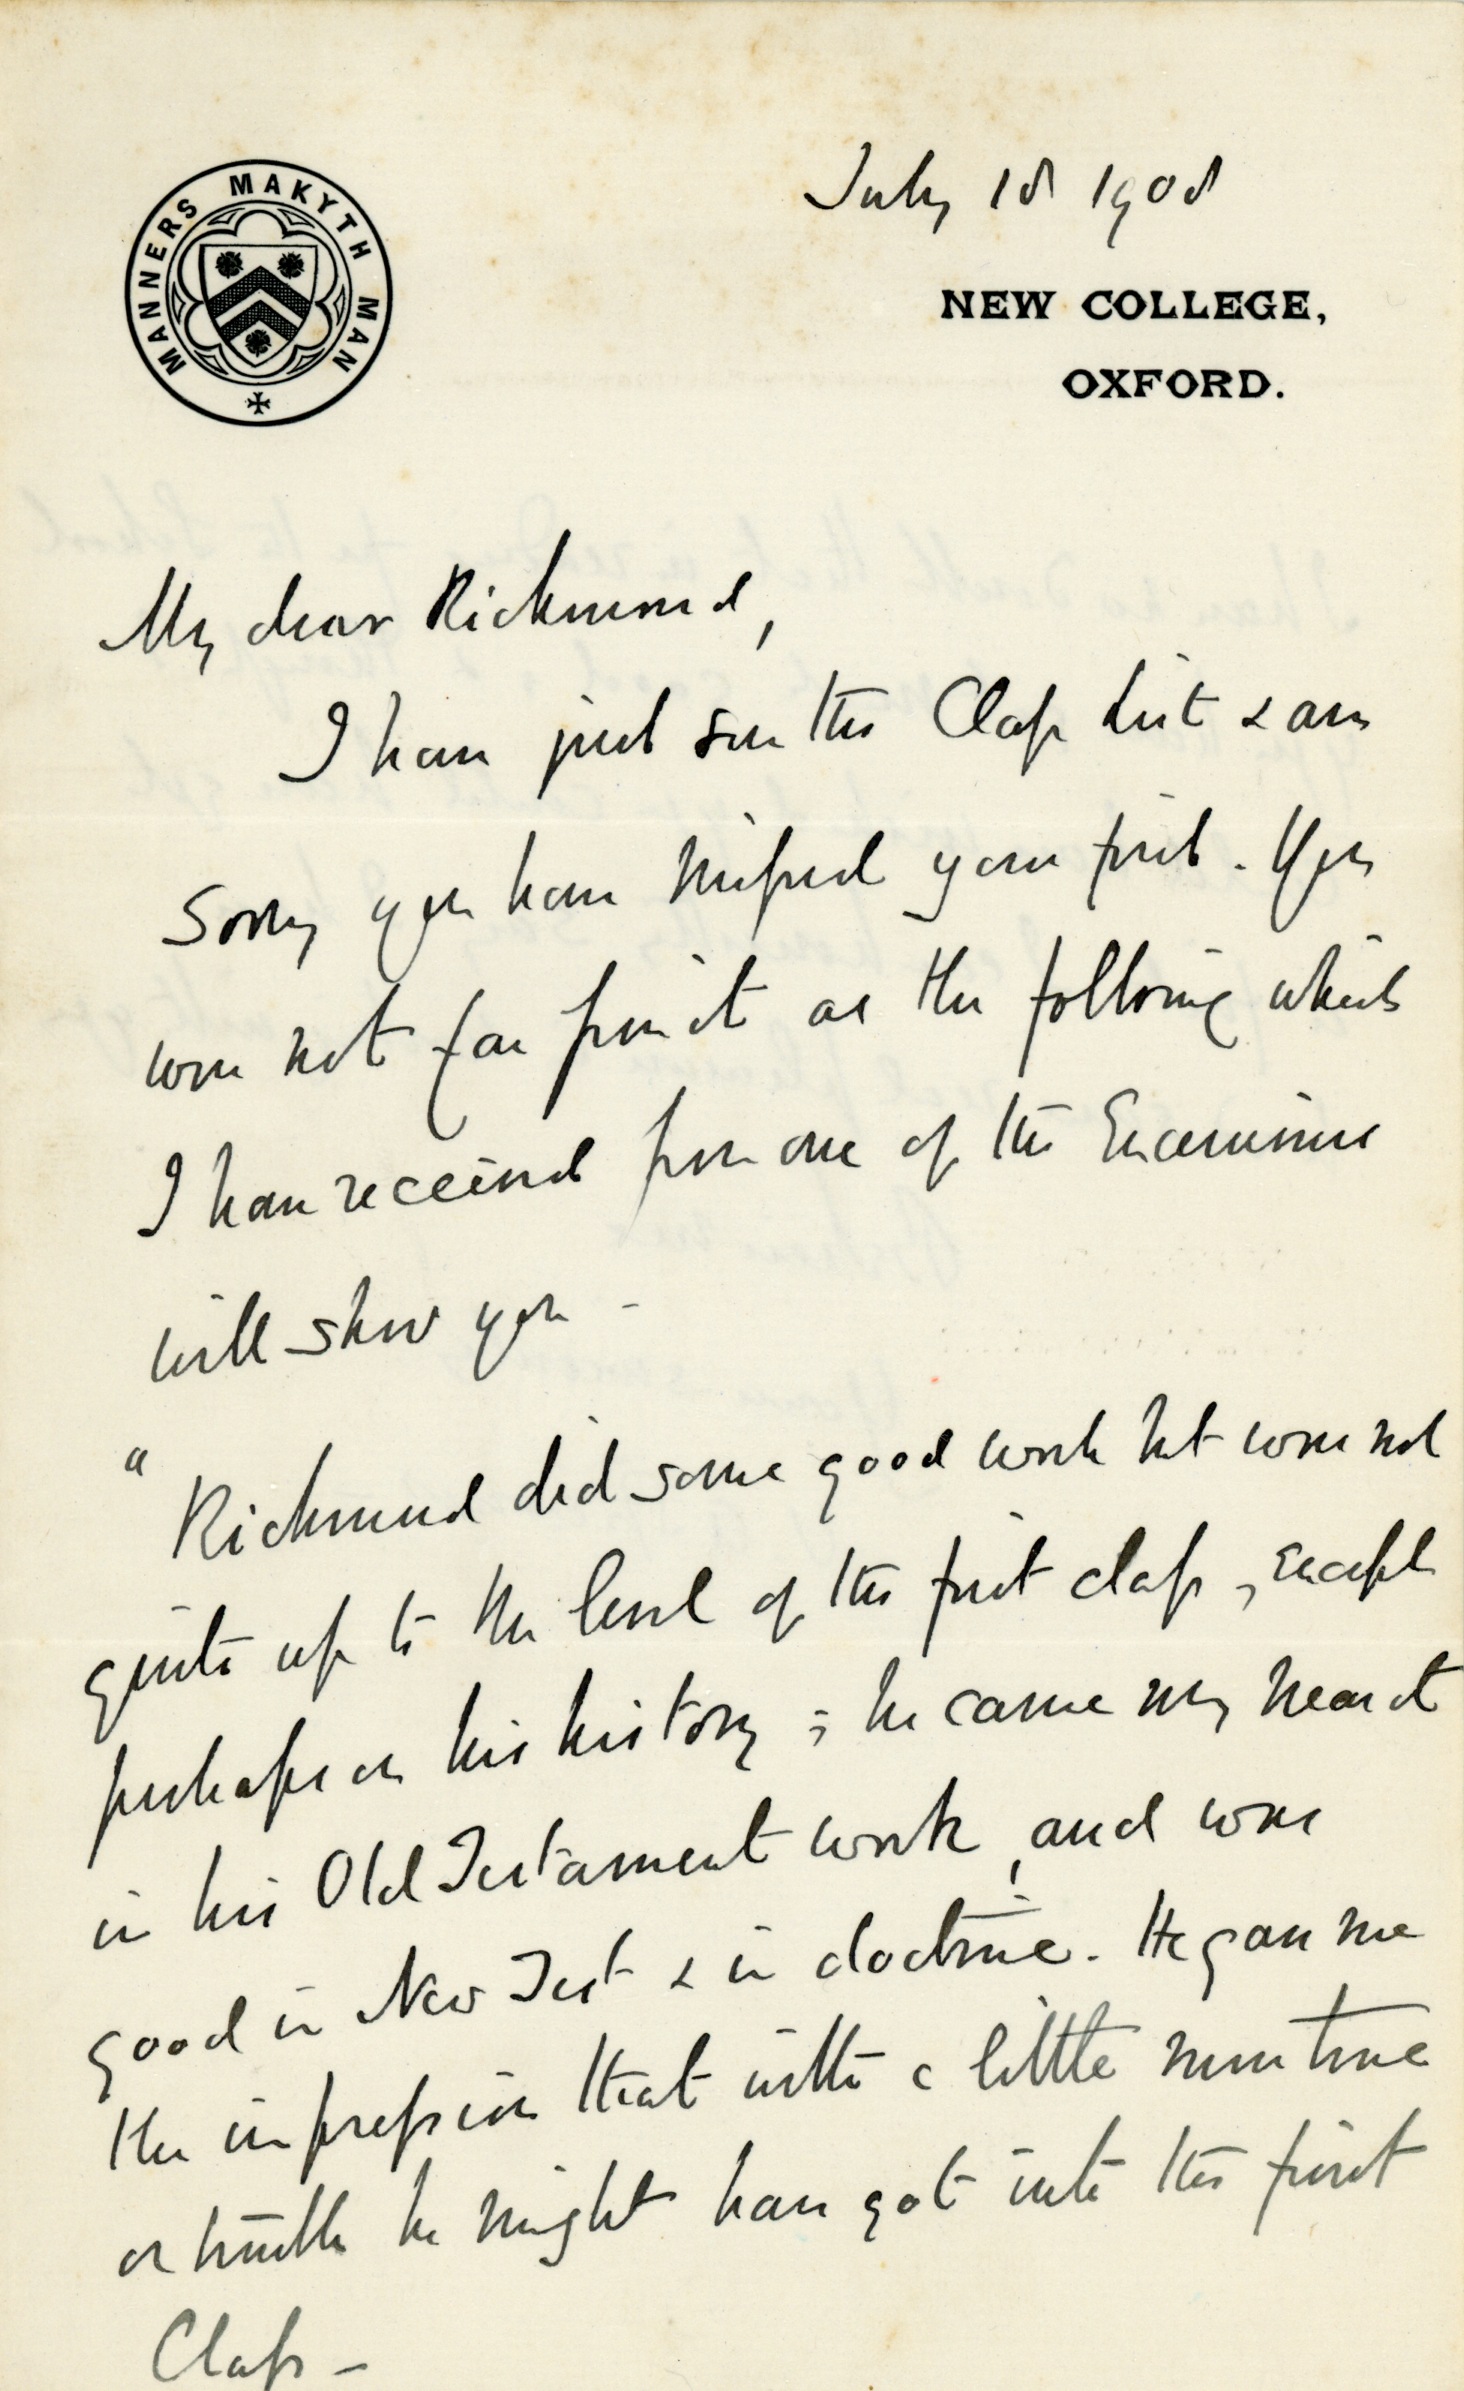 MANNERS MAKYTH MAN
July 18 1908
NEW COLLEGE,
OXFORD.
My dear Richmond,
I have just seen the Class List & am
sorry you have missed your first. You
were not far from it as the following which
I have received from one of the Examiners
will show you -
"Richmond did some good work but was not
quite up to the level of the first class, except
perhaps in his history; he came very near it
in his Old Testament work, and was
good in New Test & in doctrine. He gave me
the impression that with a little more time
or health he might have got into the first
Class -